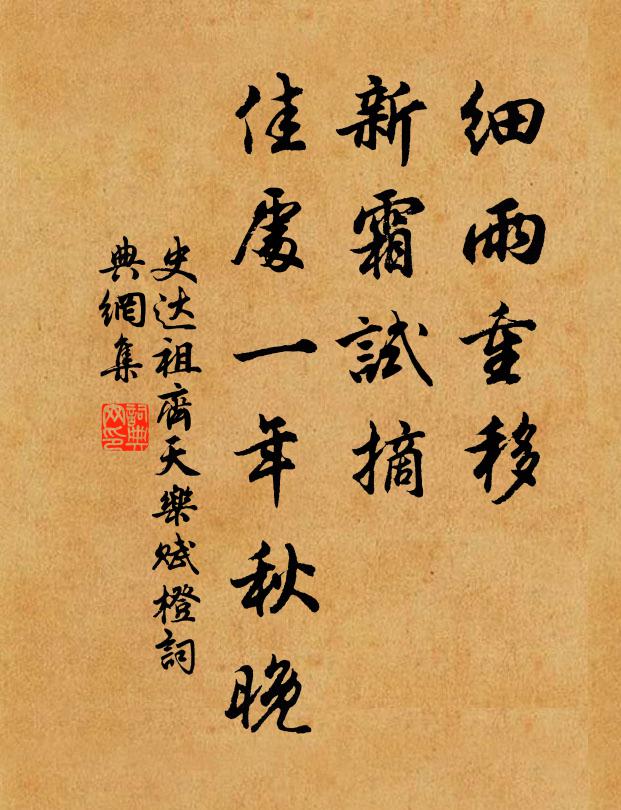 細雨重移
新霜試摘
佳處一年秋晚
史达祖齊天樂赋橙詞
典網集
詞典
网印